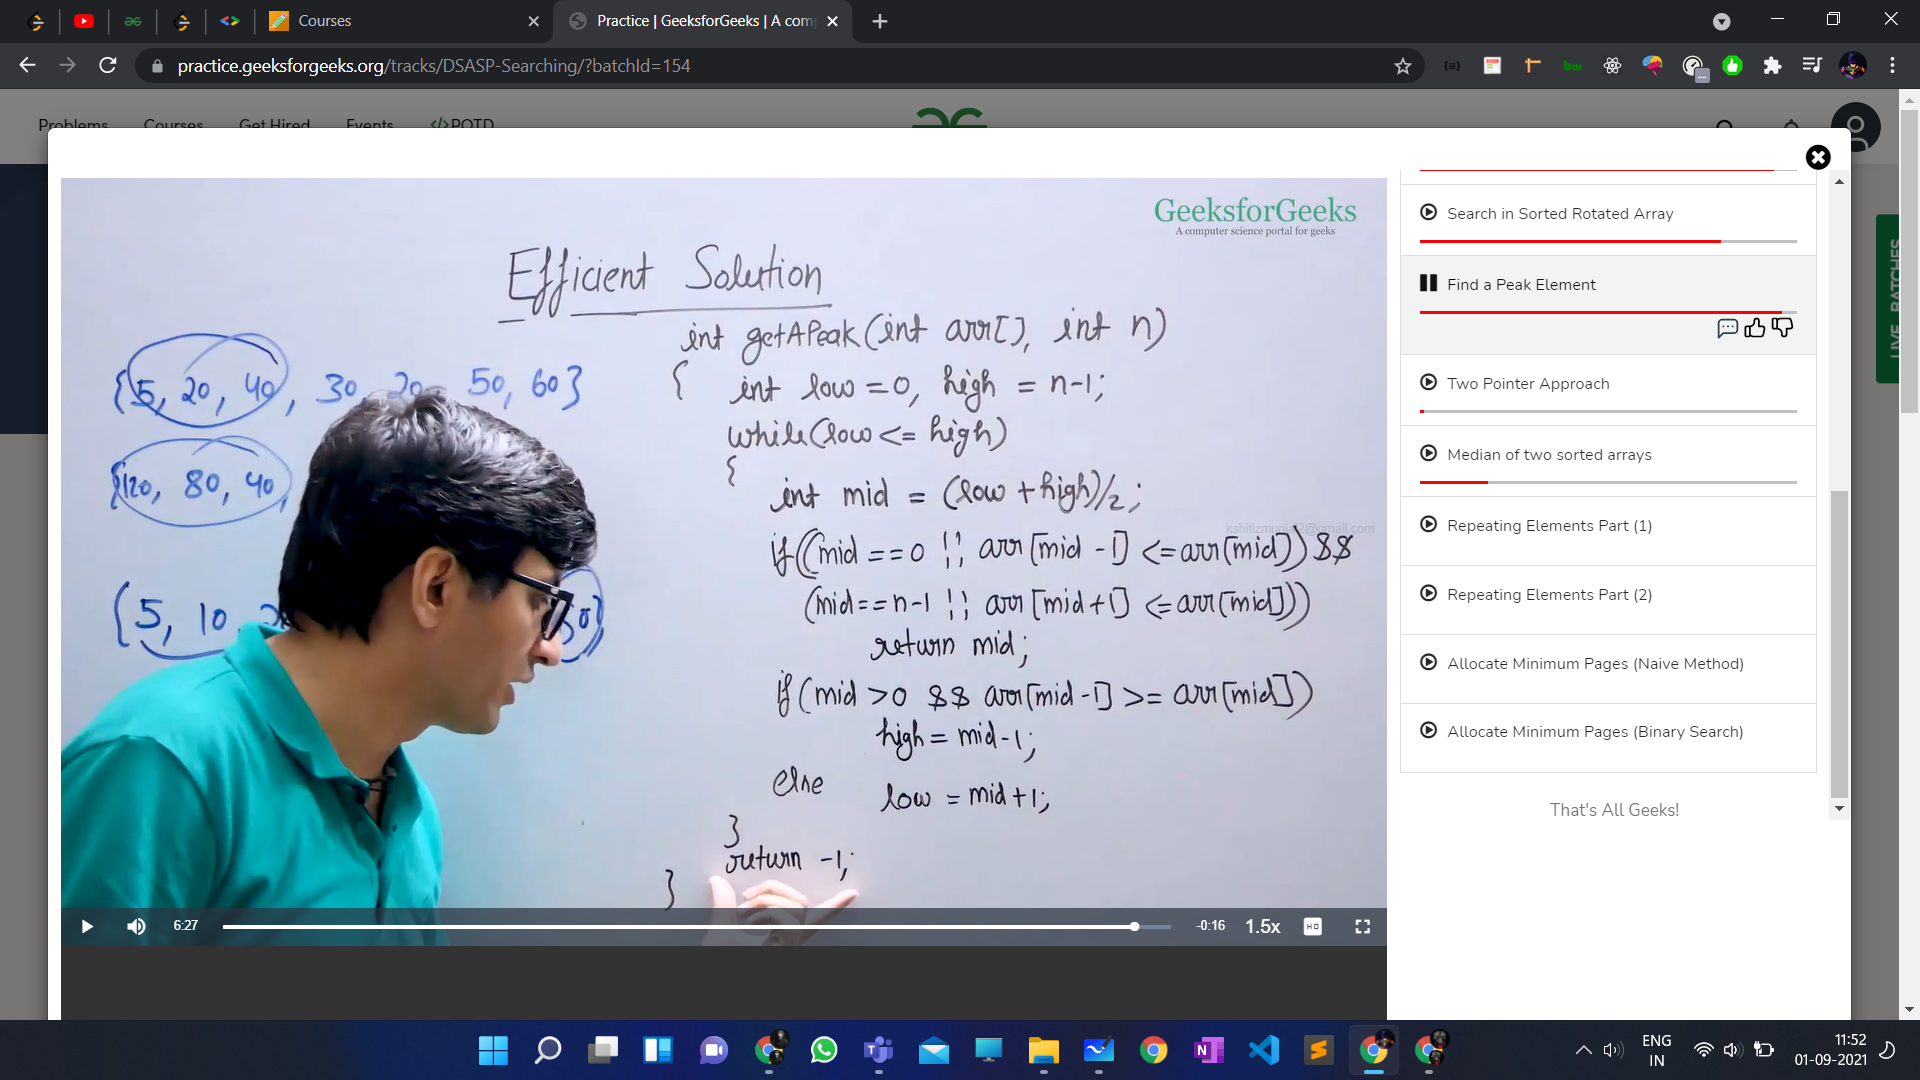 Courses
Practice | GeeksforGeeks | A com
practice.geeksforgeeks.org/tracks/DSASP-Searching/?batchId=154
Problems
Courses
Get Hired
Events
</>POTD
GeeksforGeeks
A computer science portal for geeks
Efficient Solution
{5, 20, 40, 30, 20, 50, 60}
{120, 80, 40,
{5, 10,
int getAPeak(int arr[], int n)
{ int low = 0, high = n-1;
while(low <= high)
{
int mid = (low + high)/2;
kshitizmunjal2@gmail.com
if((mid == 0 || arr[mid - 1] <= arr[mid]) &&
(mid == n-1 || arr[mid+1] <= arr[mid]))
return mid;
if(mid > 0 && arr[mid-1] >= arr[mid])
high = mid-1;
else low = mid+1;
}
return -1;
}
6:27
-0:16
1.5x
HD
Search in Sorted Rotated Array
Find a Peak Element
Two Pointer Approach
Median of two sorted arrays
Repeating Elements Part (1)
Repeating Elements Part (2)
Allocate Minimum Pages (Naive Method)
Allocate Minimum Pages (Binary Search)
That's All Geeks!
LIVE BATCHES
ENG
IN
11:52
01-09-2021